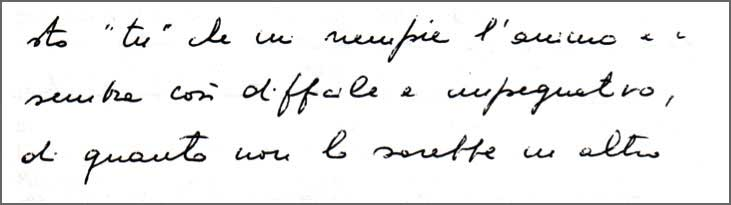 sto "tu" che mi riempie l'animo e
sembra così difficile e impegnativo,
di quanto non lo sarebbe in altro